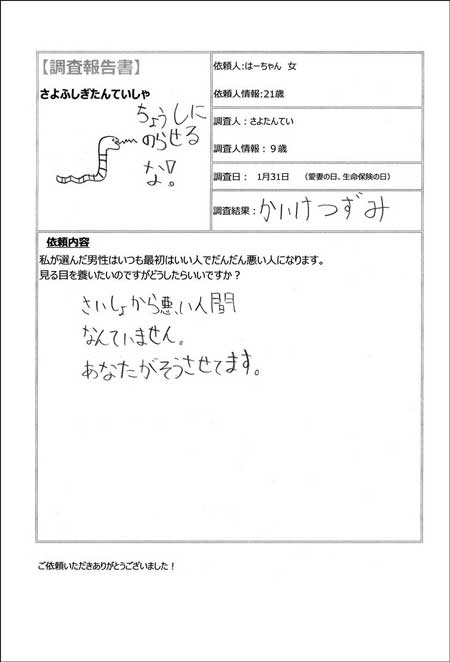 【調査報告書】
さよふしぎたんていしゃ
ちょうしに
のらせる
なよ。
依頼人:はーちゃん 女
依頼人情報:21歳
調査人:さよたんてい
調査人情報:9歳
調査日: 1月31日 (愛妻の日、生命保険の日)
調査結果:かいけつずみ
依頼内容
私が選んだ男性はいつも最初はいい人でだんだん悪い人になります。
見る目を養いたいのですがどうしたらいいですか?
さいしょから悪い人間
なんていません。
あなたがそうさせてます。
ご依頼いただきありがとうございました!